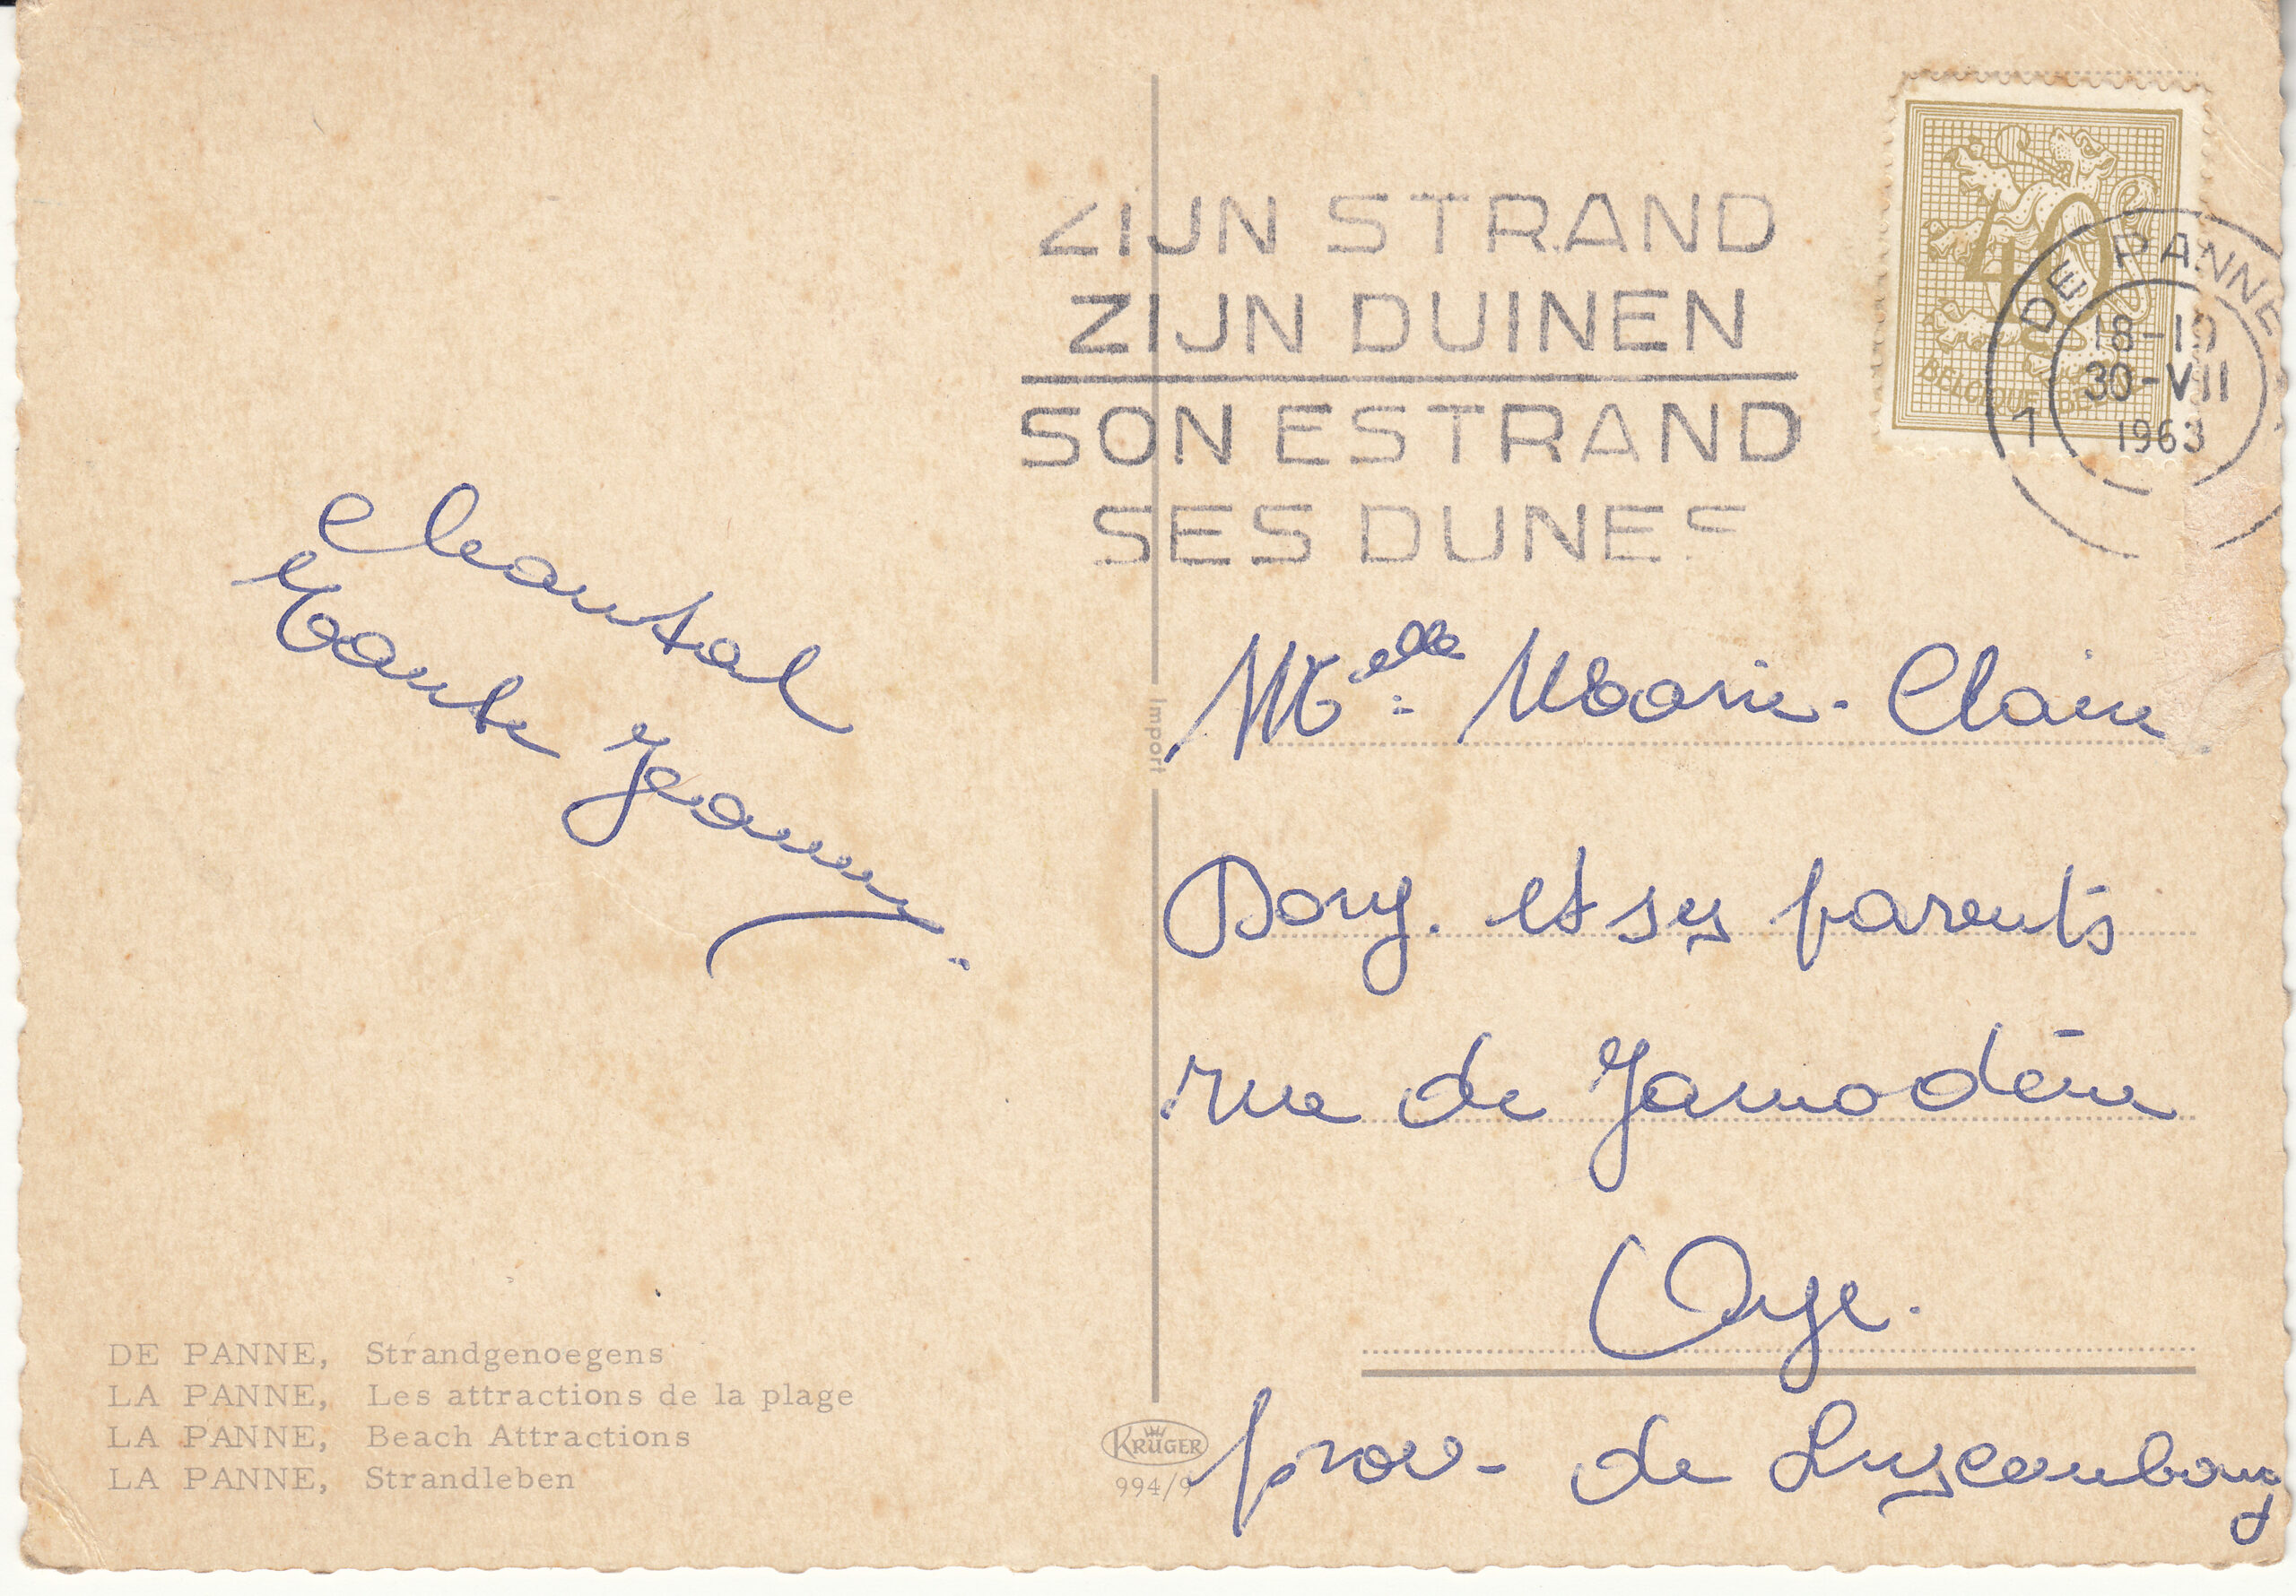 ZIJN STRAND
ZIJN DUINEN
SON ESTRAND
SES DUNES
40
BELGIQUE
DE PANNE
18-19
30-VII
1963
1
Chantal
Tante Jeanne.
Import
Melle: Marie-Claire
Dory. et ses parents
rue de Jamodène
Oye.
prov- de Luxembourg
DE PANNE, Strandgenoegens
LA PANNE, Les attractions de la plage
LA PANNE, Beach Attractions
LA PANNE, Strandleben
KRÜGER
994/9